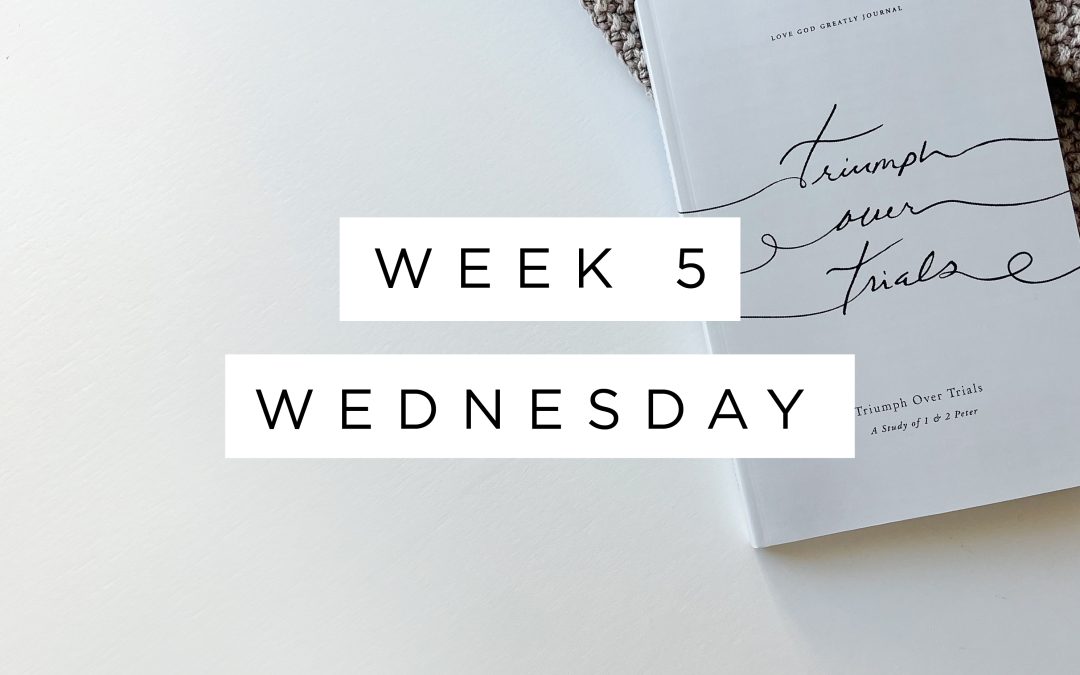 LOVE GOD GREATLY JOURNAL
Triumph
over
Trials
WEEK 5
WEDNESDAY
Triumph Over Trials
A Study of 1 & 2 Peter